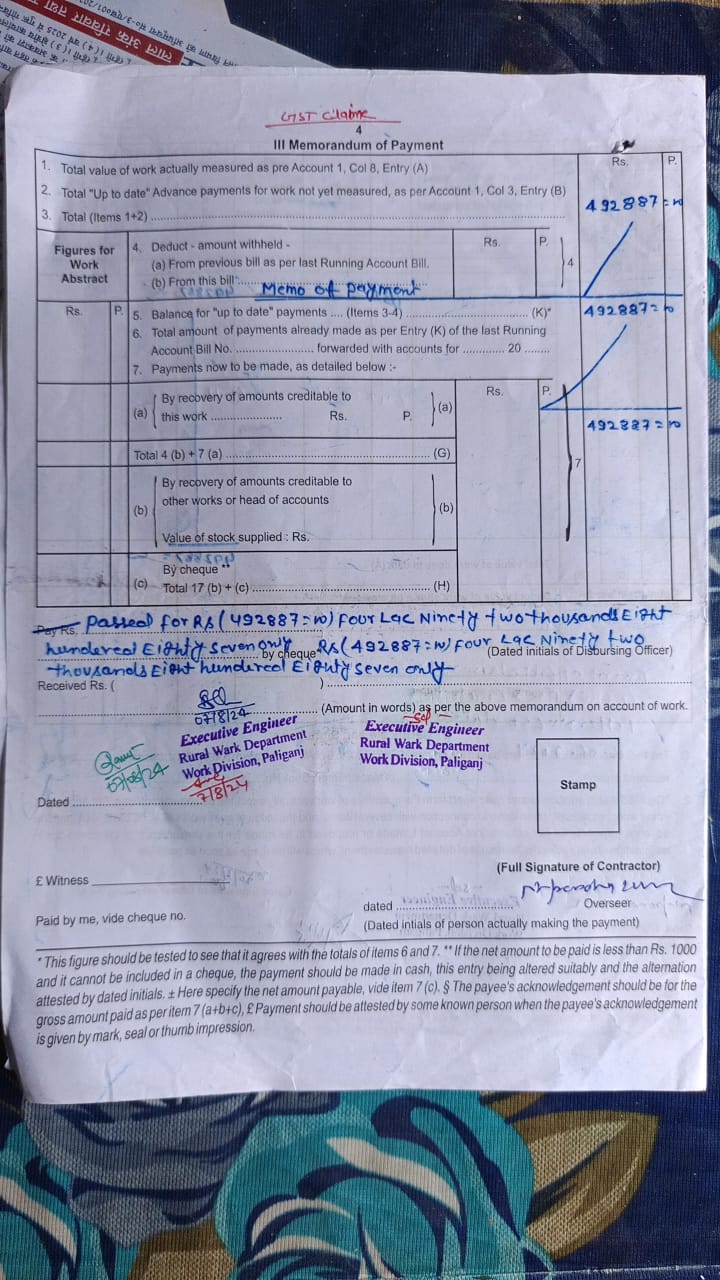 GST Claime
4
III Memorandum of Payment
Rs. P.
1. Total value of work actually measured as pre Account 1, Col 8, Entry (A)
2. Total "Up to date" Advance payments for work not yet measured, as per Account 1, Col 3, Entry (B)
3. Total (Items 1+2)
492887=00
Figures for Work Abstract
4. Deduct - amount withheld -
Rs. P.
(a) From previous bill as per last Running Account Bill.
4
(b) From this bill
Memo of payment
Rs. P.
5. Balance for "up to date" payments .... (Items 3-4) (K)*
492887=00
6. Total amount of payments already made as per Entry (K) of the last Running
Account Bill No. .................... forwarded with accounts for ............ 20 .......
7. Payments now to be made, as detailed below :-
Rs. P.
(a) By recovery of amounts creditable to
this work .................. Rs. P. (a)
492887=00
Total 4 (b) + 7 (a) (G)
7
By recovery of amounts creditable to
other works or head of accounts
(b) (b)
Value of stock supplied : Rs.
By cheque **
(c) Total 17 (b) + (c) (H)
Pay Rs. Passed for Rs (492887=00) Four Lac Ninety two thousands Eight
hundered Eighty seven only by cheque Rs (492887=00) Four Lac Ninety two
(Dated initials of Disbursing Officer)
thousands Eight hundered Eighty seven only
Received Rs. ( )
(Amount in words) as per the above memorandum on account of work.
07/8/24
Executive Engineer
Rural Wark Department
Work Division, Paliganj
Executive Engineer
Rural Wark Department
Work Division, Paliganj
07/08/24
7/8/24
Dated
Stamp
(Full Signature of Contractor)
£ Witness
dated Overseer
Paid by me, vide cheque no.
(Dated intials of person actually making the payment)
* This figure should be tested to see that it agrees with the totals of items 6 and 7. ** If the net amount to be paid is less than Rs. 1000
and it cannot be included in a cheque, the payment should be made in cash, this entry being altered suitably and the alternation
attested by dated initials. ± Here specify the net amount payable, vide item 7 (c). § The payee's acknowledgement should be for the
gross amount paid as per item 7 (a+b+c), £ Payment should be attested by some known person when the payee's acknowledgement
is given by mark, seal or thumb impression.